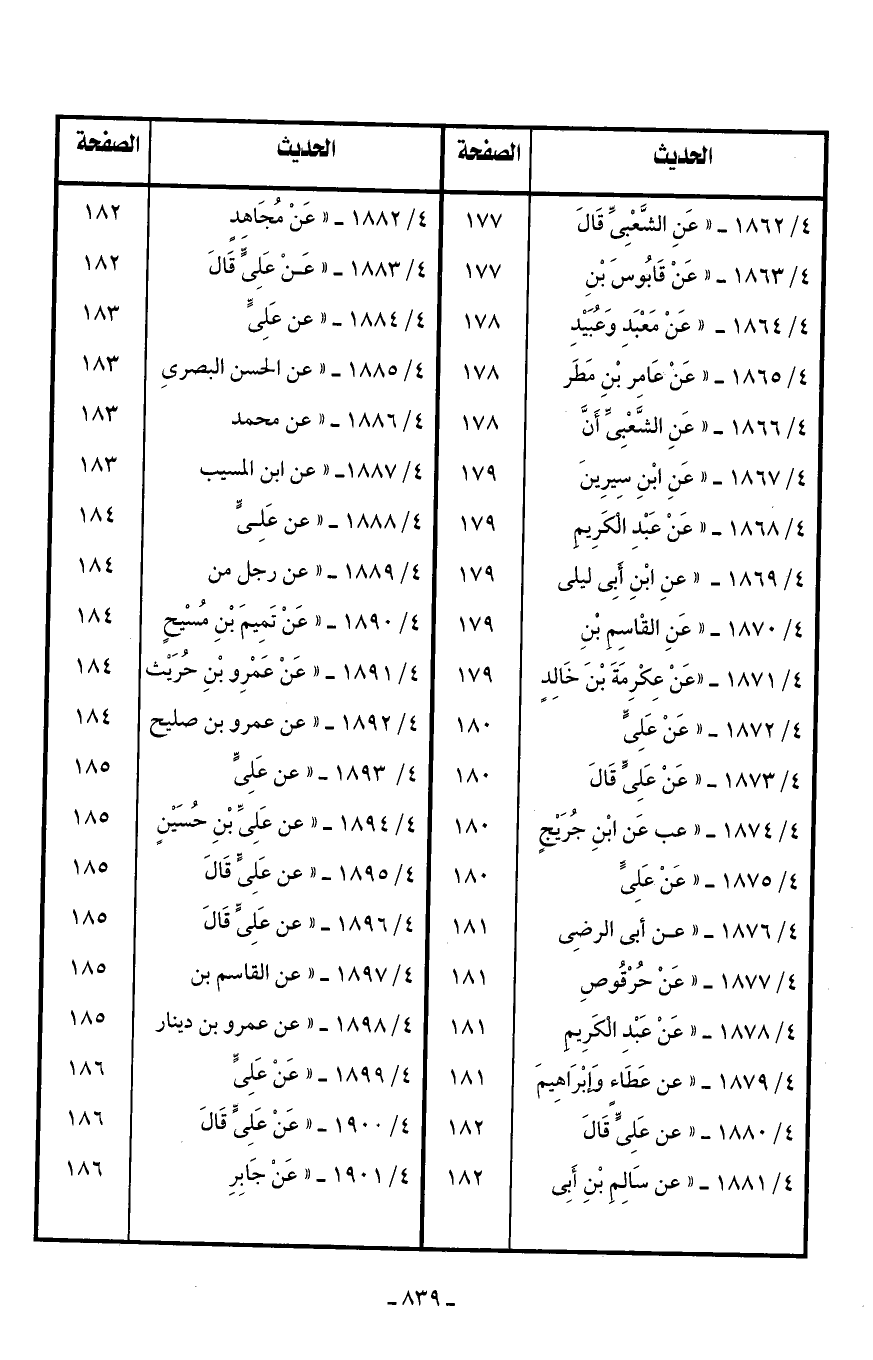 الحديث الصفحة الحديث الصفحة
٤/ ١٨٦٢ ـ « عَنِ الشَّعْبِىِّ قَالَ ١٧٧ ٤/ ١٨٨٢ ـ « عَنْ مُجَاهِدٍ ١٨٢
٤/ ١٨٦٣ ـ « عَنْ قَابُوسَ بْنِ ١٧٧ ٤/ ١٨٨٣ ـ « عَـنْ عَلِىٍّ قَالَ ١٨٢
٤/ ١٨٦٤ ـ « عَنْ مَعْبَدِ وَعُبَيْدِ ١٧٨ ٤/ ١٨٨٤ ـ « عن عَلِىٍّ ١٨٣
٤/ ١٨٦٥ ـ « عَنْ عَامِرِ بْنِ مَطَر ١٧٨ ٤/ ١٨٨٥ ـ « عن الحسن البصرىِ ١٨٣
٤/ ١٨٦٦ ـ « عَنِ الشَّعْبِىِّ أَنَّ ١٧٨ ٤/ ١٨٨٦ ـ « عن محمد ١٨٣
٤/ ١٨٦٧ ـ « عَنِ ابْنِ سِيرِينَ ١٧٩ ٤/ ١٨٨٧ـ « عن ابن المسيب ١٨٣
٤/ ١٨٦٨ ـ « عَنْ عَبْدِ الْكَرِيمِ ١٧٩ ٤/ ١٨٨٨ ـ « عن عَلِـىٍّ ١٨٤
٤/ ١٨٦٩ ـ « عنِ ابْنِ أَبِى ليلى ١٧٩ ٤/ ١٨٨٩ ـ « عن رجل من ١٨٤
٤/ ١٨٧٠ ـ « عَنِ القَاسِمِ بْنِ ١٧٩ ٤/ ١٨٩٠ ـ « عَنْ تَمِيمَ بْنِ مُسْيِحٍ ١٨٤
٤/ ١٨٧١ ـ «عَنْ عِكْرِمَةَ بْنَ خَالِدٍ ١٧٩ ٤/ ١٨٩١ ـ « عَنْ عَمْرِو بْنِ حُرَيْث ١٨٤
٤/ ١٨٧٢ ـ « عَنْ عَلِىٍّ ١٨٠ ٤/ ١٨٩٢ ـ « عن عمرو بن صليح ١٨٤
٤/ ١٨٧٣ ـ « عَنْ عَلِىٍّ قَالَ ١٨٠ ٤/ ١٨٩٣ ـ « عن عَلِىٍّ ١٨٥
٤/ ١٨٧٤ ـ « عب عَن ابْنِ جُرَيْجٍ ١٨٠ ٤/ ١٨٩٤ ـ « عن عَلِىِّ بْنِ حُسَيْنٍ ١٨٥
٤/ ١٨٧٥ ـ « عَنْ عَلِىٍّ ١٨٠ ٤/ ١٨٩٥ ـ « عن عَلِىٍّ قَالَ ١٨٥
٤/ ١٨٧٦ ـ « عـن أبى الرضى ١٨١ ٤/ ١٨٩٦ ـ « عن عَلِىٍّ قَالَ ١٨٥
٤/ ١٨٧٧ ـ « عَنْ حُرْقُوصِ ١٨١ ٤/ ١٨٩٧ ـ « عن القاسم بن ١٨٥
٤/ ١٨٧٨ ـ « عَنْ عَبْدِ الْكَرِيمِ ١٨١ ٤/ ١٨٩٨ ـ « عن عمرو بن دينار ١٨٥
٤/ ١٨٧٩ ـ « عن عَطَاءٍ وَإِبْرَاهِيمَ ١٨١ ٤/ ١٨٩٩ ـ « عَنْ عَلِىٍّ ١٨٦
٤/ ١٨٨٠ ـ « عن عَلِىٍّ قَالَ ١٨٢ ٤/ ١٩٠٠ ـ « عَنْ عَلِىٍّ قَالَ ١٨٦
٤/ ١٨٨١ ـ « عن سَالِمِ بْنِ أَبِى ١٨٢ ٤/ ١٩٠١ ـ « عَنْ جَابِرِ ١٨٦
ـ ٨٣٩ ـ